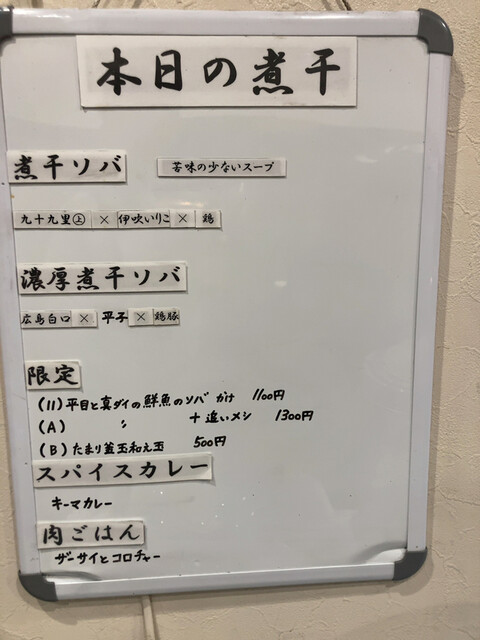 本日の煮干
煮干ソバ 苦味の少ないスープ
九十九里㊤×伊吹いりこ×鶏
濃厚煮干ソバ
広島白口×平子×鶏豚
限定
(11)平目と真ダイの鮮魚のソバ かけ 1100円
(A) 〃 +追いメシ 1300円
(B)たまり釜玉和え玉 500円
スパイスカレー
キーマカレー
肉ごはん
ザーサイとコロチャー